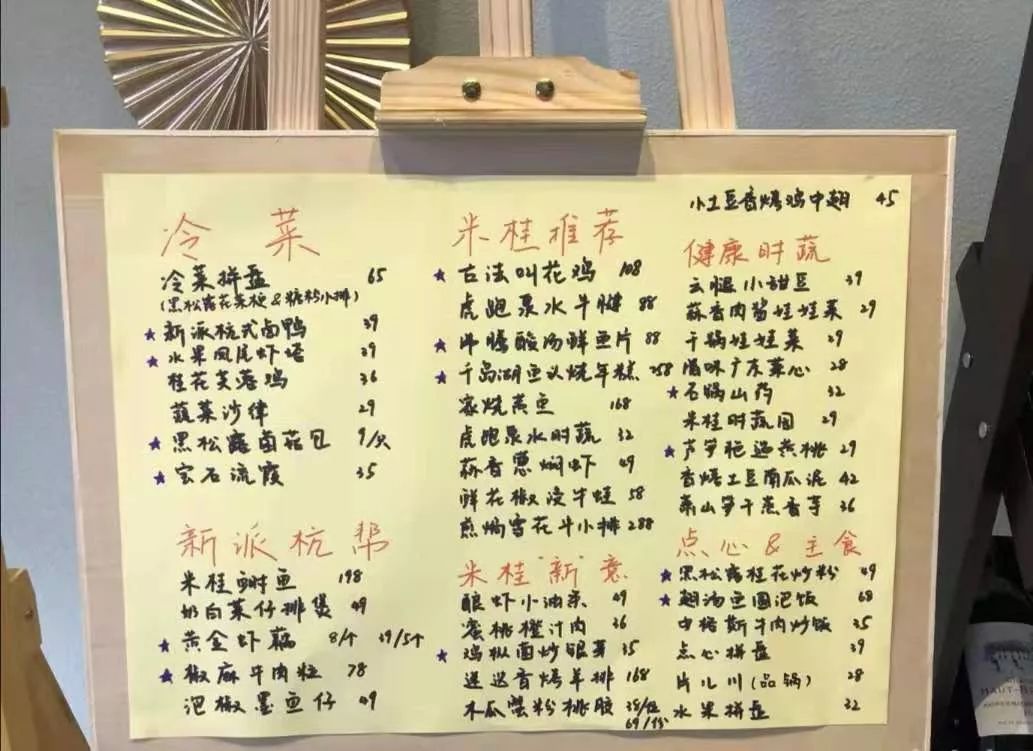 冷菜
冷菜拼盘 65
(黑松露花菜梗&糖醋小排)
★新派杭式卤鸭 39
★水果凤尾虾塔 39
桂花芙蓉鸡 36
蔬菜沙律 29
★黑松露菌菇包 9/只
★宝石流霞 35
新派杭帮
米桂鲥鱼 198
奶白菜仔排煲 49
★黄金虾藕 8/个 39/5个
★椒麻牛肉粒 78
泡椒墨鱼仔 49
米桂推荐
★古法叫花鸡 108
虎跑泉水牛腱 88
★沸腾酸汤鲜鱼片 88
★千岛湖鱼头烧年糕 258
家烧黄鱼 168
虎跑泉水时蔬 32
蒜香葱焖虾 49
鲜花椒浸牛蛙 58
煎焗雪花牛小排 288
米桂"新"意
酿虾小油条 49
蜜桃橙汁肉 36
★鸡枞菌炒银芽 35
迷迭香烤羊排 168
木瓜雪粉桃胶 38/位
69/份
小土豆香烤鸡中翅 45
健康时蔬
云腿小甜豆 39
蒜香肉酱娃娃菜 29
干锅娃娃菜 29
腊味广东菜心 28
★石锅山药 32
米桂时蔬园 29
★芦笋芭迪燕桃 29
香焗土豆南瓜泥 42
泰山笋干蒸香芋 36
点心&主食
★黑松露桂花炒粉 49
★翅汤鱼圆泡饭 68
中格斯牛肉炒饭 35
点心拼盘 39
片儿川(品锅) 28
水果拼盘 32